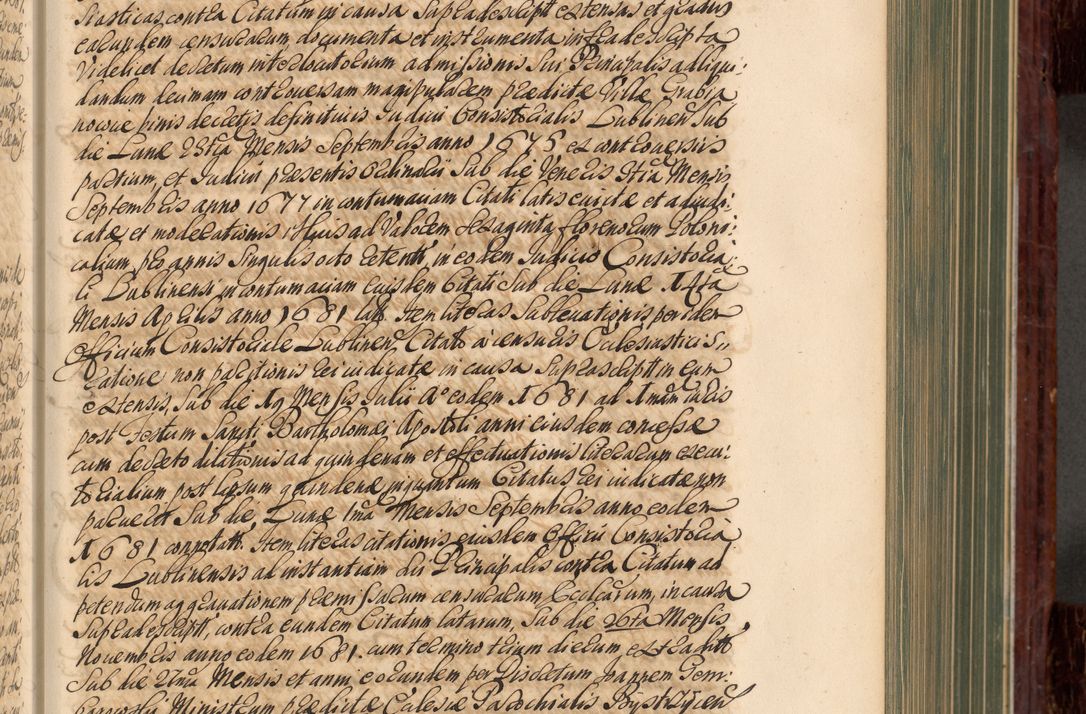 siasticas, contra Citatum in causa Supradescript extensas et gradus
earundem censurarum, documenta et instrumenta infradescripta
Videlicet decretum interlocutorium admissionis Sui Principalis ad liqui:
dandum decimam controversam manipularem prædictæ Villæ Grabia
nowie finis decretis definitivis Iudicii Consistorialis Lublinen Sub
die Lunæ 28tia Mensis Septembris anno 1675 ex controversiis
partium, et Iudicii præsentis ordinarii Sub die Veneris 3tia Mensis
Septembris anno 1677 in contumaciam Citati latis evictæ et adiudi:
catæ, et moderationis illius ad Valorem sexaginta florenorum Poloni:
calium, pro annis Singulis octo retenti, in eodem Iudicio Consistoria:
li Lublinensi in contumaciam Eiusdem Citati Sub die Lunæ 14ta
Mensis Aprilis anno 1681 lat. Item literas Sublevationis per idem
Officium Consistoriale Lublinen Citato a censuris Ecclesiasticis,
ratione non paritionis rei iudicatæ in causa Suprascript in eum
extensis, Sub die 19 Mensis Iulii Ao eodem 1681 ad 1mam iuris
post Festum Sancti Bartholomæi Apostoli anni eiusdem concessæ
cum decreto dilationis ad quindenam et effectuationis literarum execu:
torialium post lapsum quindenæ inquantum Citatus rei iudicatæ non
paruerit Sub die Lunæ 1ma Mensis Septembris anno eodem
1681 connotat. Item literas citationis eiusdem Officii Consistoria
lis Lublinensis ad instantiam Sui Principalis contra Citatum ad
petendum aggravationem præmissarum censurarum Ecclcarum, in causa
Supradescript, contra eundem Citatum latarum, Sub die 26ta Mensis
Novembris anno eodem 1681. cum termino trium dierum extradit
Sub die 27ma Mensis et anni eorundem per Discretum Ioannem Gem:
Ministrum prædictæ Ecclesiæ Parochialis Bystrzycen